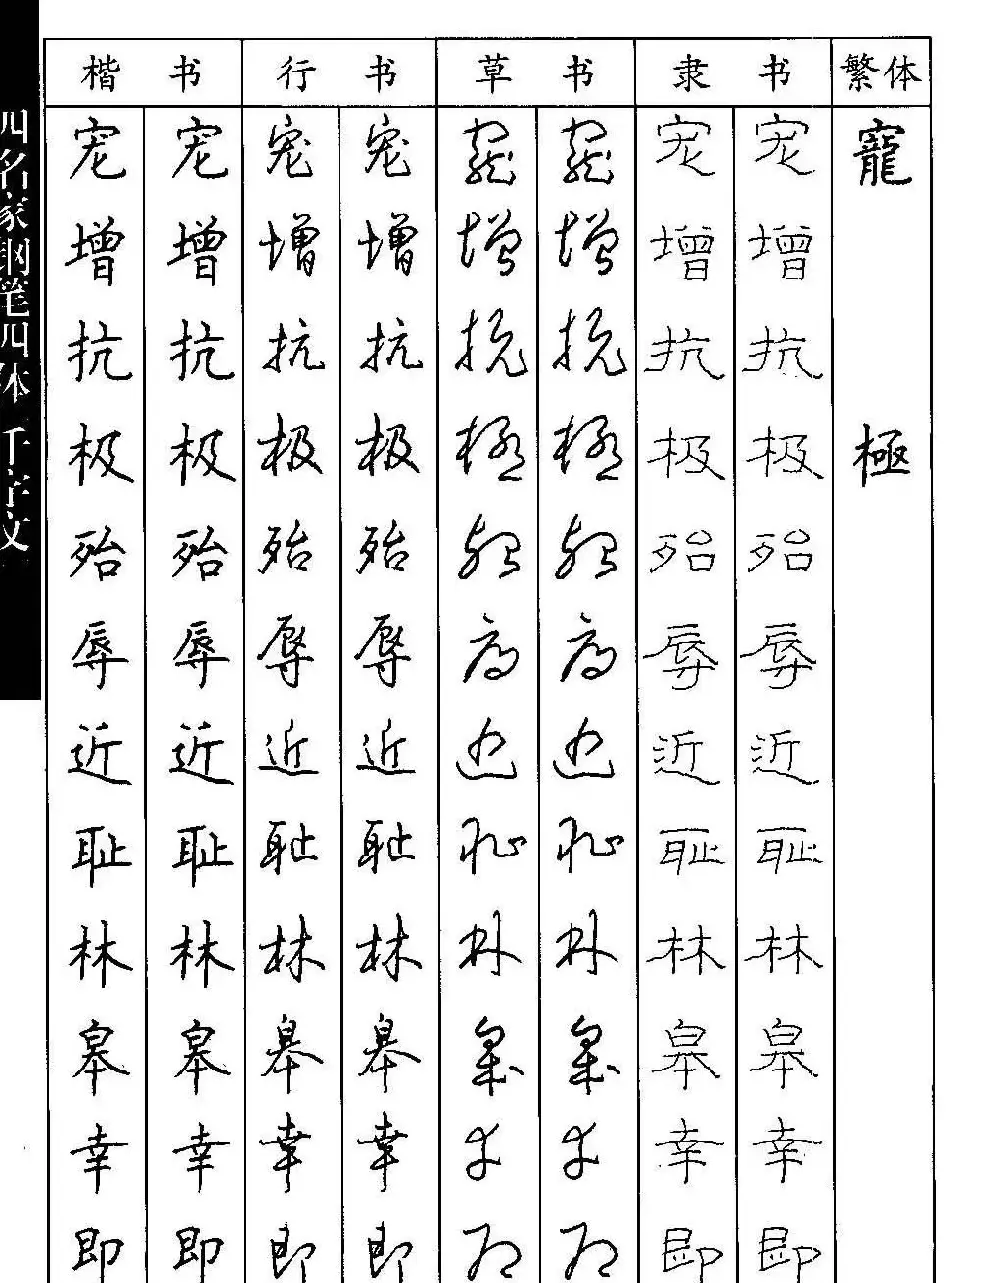 四名家钢笔四体 千字文
楷 书 行 书 草 书 隶 书 繁体
宠 宠 宠 宠 宠 宠 宠 宠 寵
增 增 增 增 增 增 增 增
抗 抗 抗 抗 抗 抗 抗 抗
极 极 极 极 极 极 极 极 極
殆 殆 殆 殆 殆 殆 殆 殆
辱 辱 辱 辱 辱 辱 辱 辱
近 近 近 近 近 近 近 近
耻 耻 耻 耻 耻 耻 耻 耻
林 林 林 林 林 林 林 林
皋 皋 皋 皋 皋 皋 皋 皋
幸 幸 幸 幸 幸 幸 幸 幸
即 即 即 即 即 即 即 即